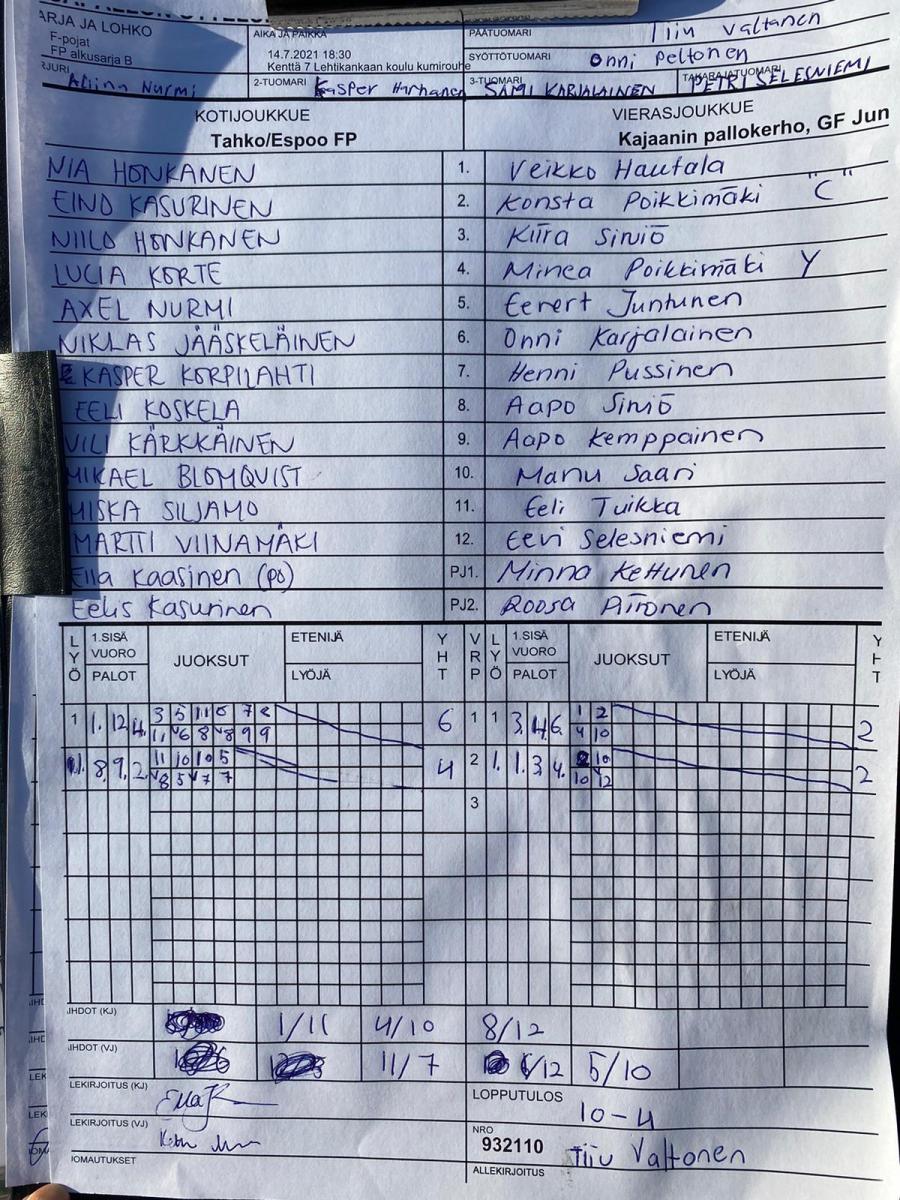 ARJA JA LOHKO
F-pojat
FP alkusarja B
AIKA JA PAIKKA
14.7.2021 18:30
Kenttä 7 Lehtikankaan koulu kumirouhe
PÄÄTUOMARI Tiiu Valtanen
SYÖTTÖTUOMARI Onni Peltonen
Aliina Nurmi 2-TUOMARI Kasper 3-TUOMARI SAMI KARJALAINEN TAKARAJATUOMARI PETRI SELESNIEMI
KOTIJOUKKUE VIERASJOUKKUE
Tahko/Espoo FP Kajaanin pallokerho, GF Jun
NIA HONKANEN 1. Veikko Hautala
EINO KASURINEN 2. Konsta Poikkimäki "C"
NIILO HONKANEN 3. Kiira Siniö
LUCIA KORTE 4. Minea Poikkimäki Y
AXEL NURMI 5. Eenert Juntunen
NIKLAS JÄÄSKELÄINEN 6. Onni Karjalainen
KASPER KORPILAHTI 7. Henni Pussinen
EELI KOSKELA 8. Aapo Siniö
VILI KÄRKKÄINEN 9. Aapo Kemppainen
MIKAEL BLOMQVIST 10. Manu Saari
MISKA SILJAMO 11. Eeli Tuikka
MARTTI VIINAMÄKI 12. Eevi Selesniemi
Ella Kaasinen (po) PJ1. Minna Kettunen
Eelis Kasurinen PJ2. Roosa Piironen
LYÖ 1.SISÄ VUORO PALOT JUOKSUT ETENIJÄ LYÖJÄ YHT VRP LYÖ 1.SISÄ VUORO PALOT JUOKSUT ETENIJÄ LYÖJÄ YHT
1 1. 12 4. 3 5 11 6 7 8 6 1 1 3. 4. 6. 1 2 2
11 6 8 8 9 9 4 10
8. 9. 2. 11 10 10 5 4 2 1. 1. 3 4. 10 2
8 5 7 7 10 12
3
IHDOT (KJ) 1/11 4/10 8/12
IHDOT (VJ) 11/7 6/12 5/10
LEKIRJOITUS (KJ)
LOPPUTULOS 10-4
LEKIRJOITUS (VJ)
NRO
932110
IOMAUTUKSET
ALLEKIRJOITUS Tiiu Valtonen